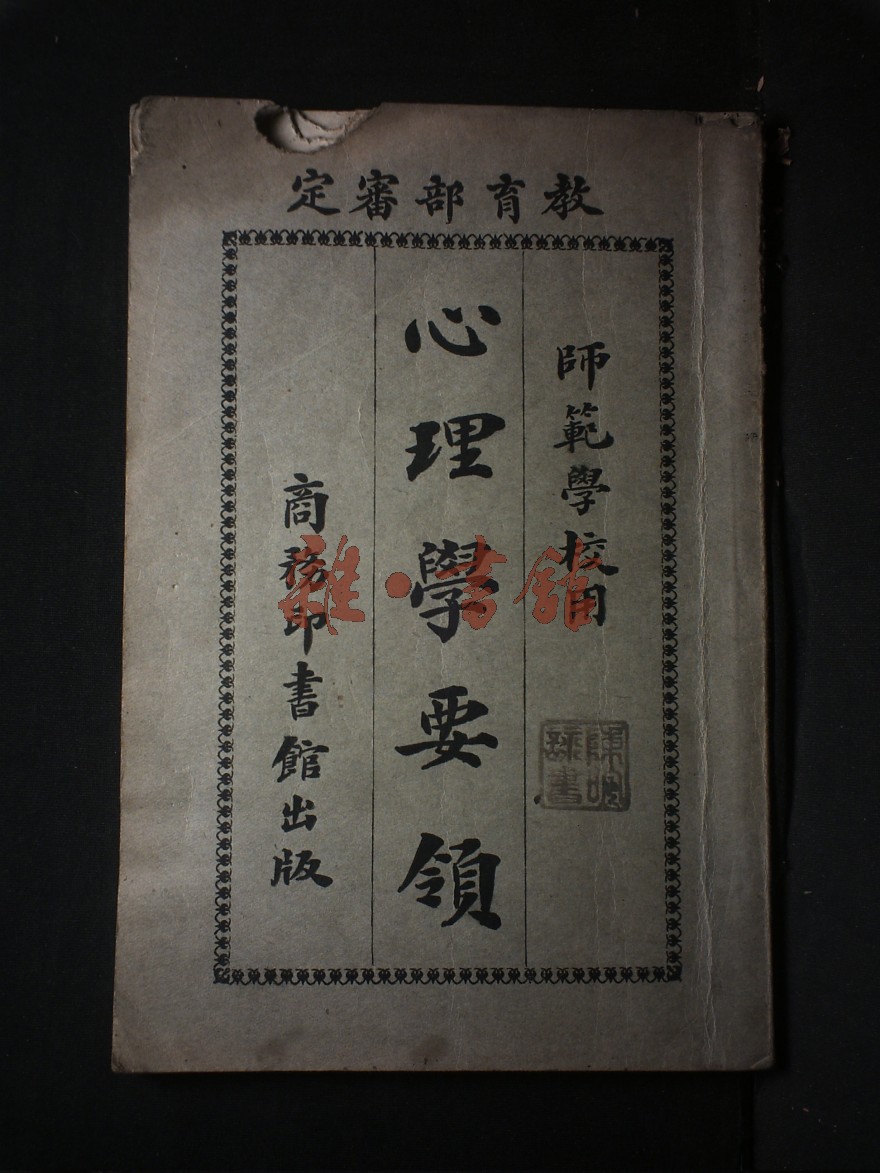 教育部審定
師範學校用
心理學要領
商務印書館出版
雜·書館